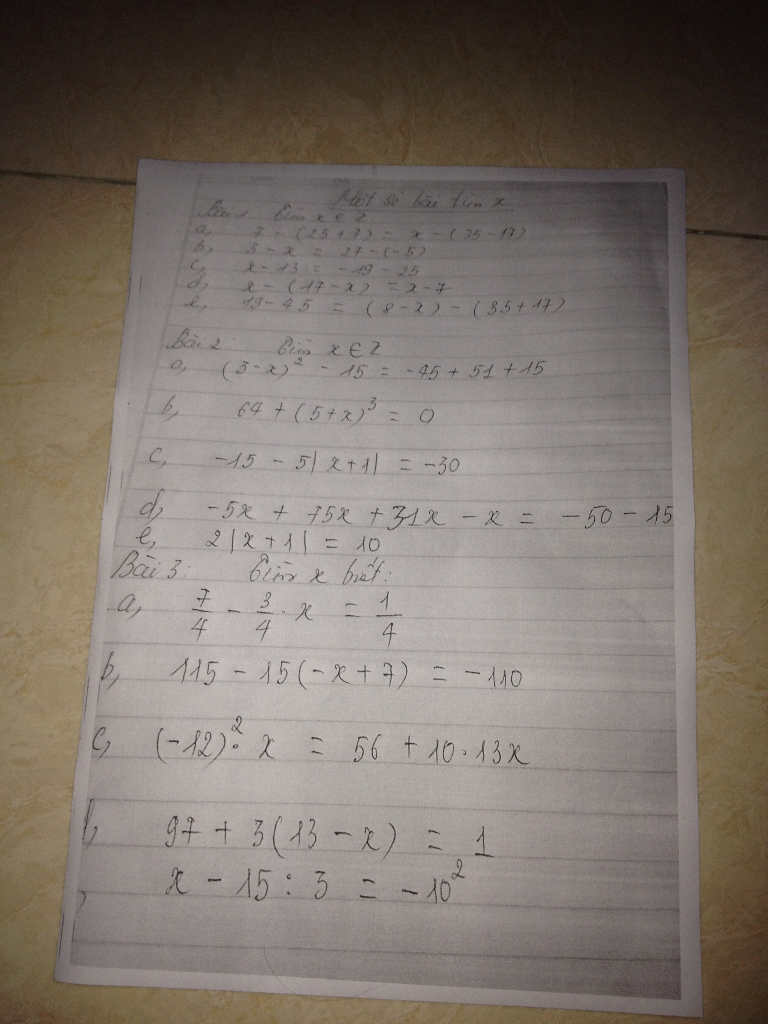 Một số bài tìm x
Bài 1 Tìm x ∈ Z
a, 7 - (25+7) = x - (25-17)
b, 3 - x = 27 - (-5)
c, x - 13 = -19 - 25
d, x - (17-x) = x - 7
e, 19 - 45 = (8-x) - (35+17)
Bài 2: Tìm x ∈ Z
a, (3-x)² - 15 = -45 + 51 + 15
b, 64 + (5+x)³ = 0
c, -15 - 5|x+1| = -30
d, -5x + 15x + 31x - x = -50 - 15
e, 2|x+1| = 10
Bài 3: Tìm x biết:
a, 7/4 - 3/4 . x = 1/4
b, 115 - 15(-x+7) = -110
c, (-12)² . x = 56 + 10.13x
97 + 3(13 - x) = 1
x - 15 : 3 = -10²